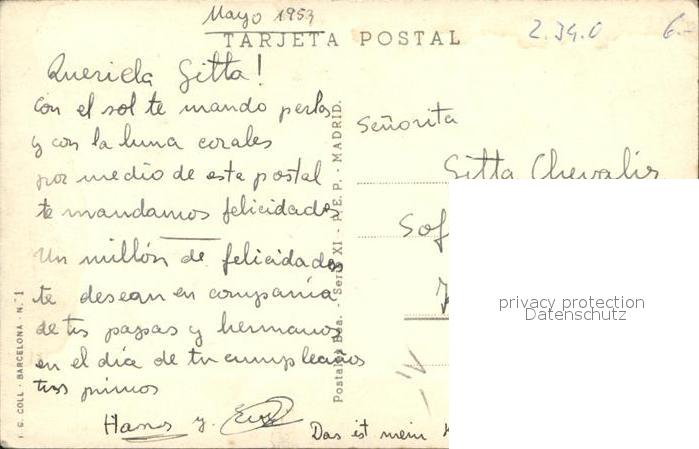 Mayo 1953
TARJETA POSTAL
2.34.0
6.-
Querida Gitta!
Con el sol te mando perlas
y con la luna corales
por medio de esta postal
te mandamos felicidades
Un millón de felicidades
te desean en compania
de tus papas y hermanos
en el día de tu cumpleaños
tus primos
Hanns y
Das ist mein
Señorita
Gitta Chevalier
Sof
privacy protection
Datenschutz
I. G. COLL - BARCELONA - N.° 1
Postales Bea. - Serie XI - P. E. P. - MADRID.